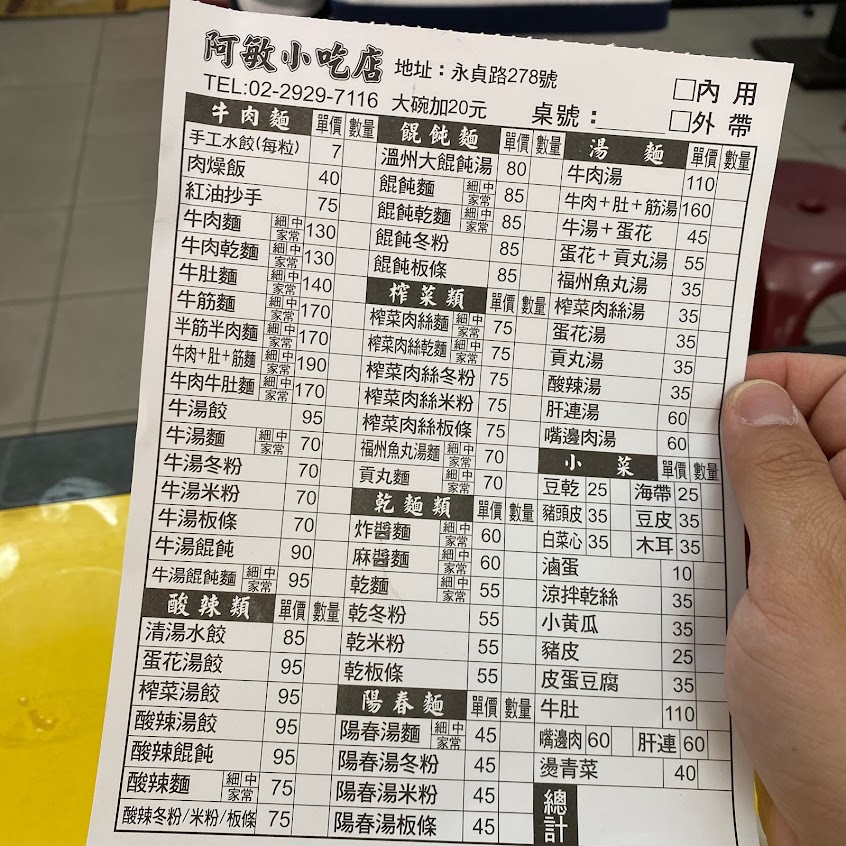 阿敏小吃店 地址：永貞路278號 □內用
TEL:02-2929-7116 大碗加20元 桌號：_____ □外帶
牛肉麵 單價 數量
手工水餃(每粒) 7
肉燥飯 40
紅油抄手 75
牛肉麵 細 中 家常 130
牛肉乾麵 細 中 家常 130
牛肚麵 細 中 家常 140
牛筋麵 細 中 家常 170
半筋半肉麵 細 中 家常 170
牛肉+肚+筋麵 細 中 家常 190
牛肉牛肚麵 細 中 家常 170
牛湯餃 95
牛湯麵 細 中 家常 70
牛湯冬粉 70
牛湯米粉 70
牛湯板條 70
牛湯餛飩 90
牛湯餛飩麵 細 中 家常 95
酸辣類 單價 數量
清湯水餃 85
蛋花湯餃 95
榨菜湯餃 95
酸辣湯餃 95
酸辣餛飩 95
酸辣麵 細 中 家常 75
酸辣冬粉/米粉/板條 75
餛飩麵 單價 數量
溫州大餛飩湯 80
餛飩麵 細 中 家常 85
餛飩乾麵 細 中 家常 85
餛飩冬粉 85
餛飩板條 85
榨菜類 單價 數量
榨菜肉絲麵 細 中 家常 75
榨菜肉絲乾麵 細 中 家常 75
榨菜肉絲冬粉 75
榨菜肉絲米粉 75
榨菜肉絲板條 75
福州魚丸湯麵 細 中 家常 70
貢丸麵 細 中 家常 70
乾麵類 單價 數量
炸醬麵 細 中 家常 60
麻醬麵 細 中 家常 60
乾麵 細 中 家常 55
乾冬粉 55
乾米粉 55
乾板條 55
陽春麵 單價 數量
陽春湯麵 細 中 家常 45
陽春湯冬粉 45
陽春湯米粉 45
陽春湯板條 45
湯麵 單價 數量
牛肉湯 110
牛肉+肚+筋湯 160
牛湯+蛋花 45
蛋花+貢丸湯 55
福州魚丸湯 35
榨菜肉絲湯 35
蛋花湯 35
貢丸湯 35
酸辣湯 35
肝連湯 60
嘴邊肉湯 60
小菜 單價 數量
豆乾 25 海帶 25
豬頭皮 35 豆皮 35
白菜心 35 木耳 35
滷蛋 10
涼拌乾絲 35
小黃瓜 35
豬皮 25
皮蛋豆腐 35
牛肚 110
嘴邊肉 60 肝連 60
燙青菜 40
總計